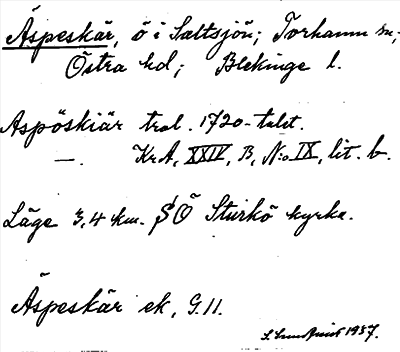 Äspeskär, ö i Saltsjön; Torhamn sn;
Östra hd; Blekinge l.
Aspöskiär trol. 1720-talet.
—. KrA, XXIV, B, N:o IX, lit. b.
Läge 3,4 km. SÖ Sturkö kyrka.
Äspeskär ek, G.11.
1937.